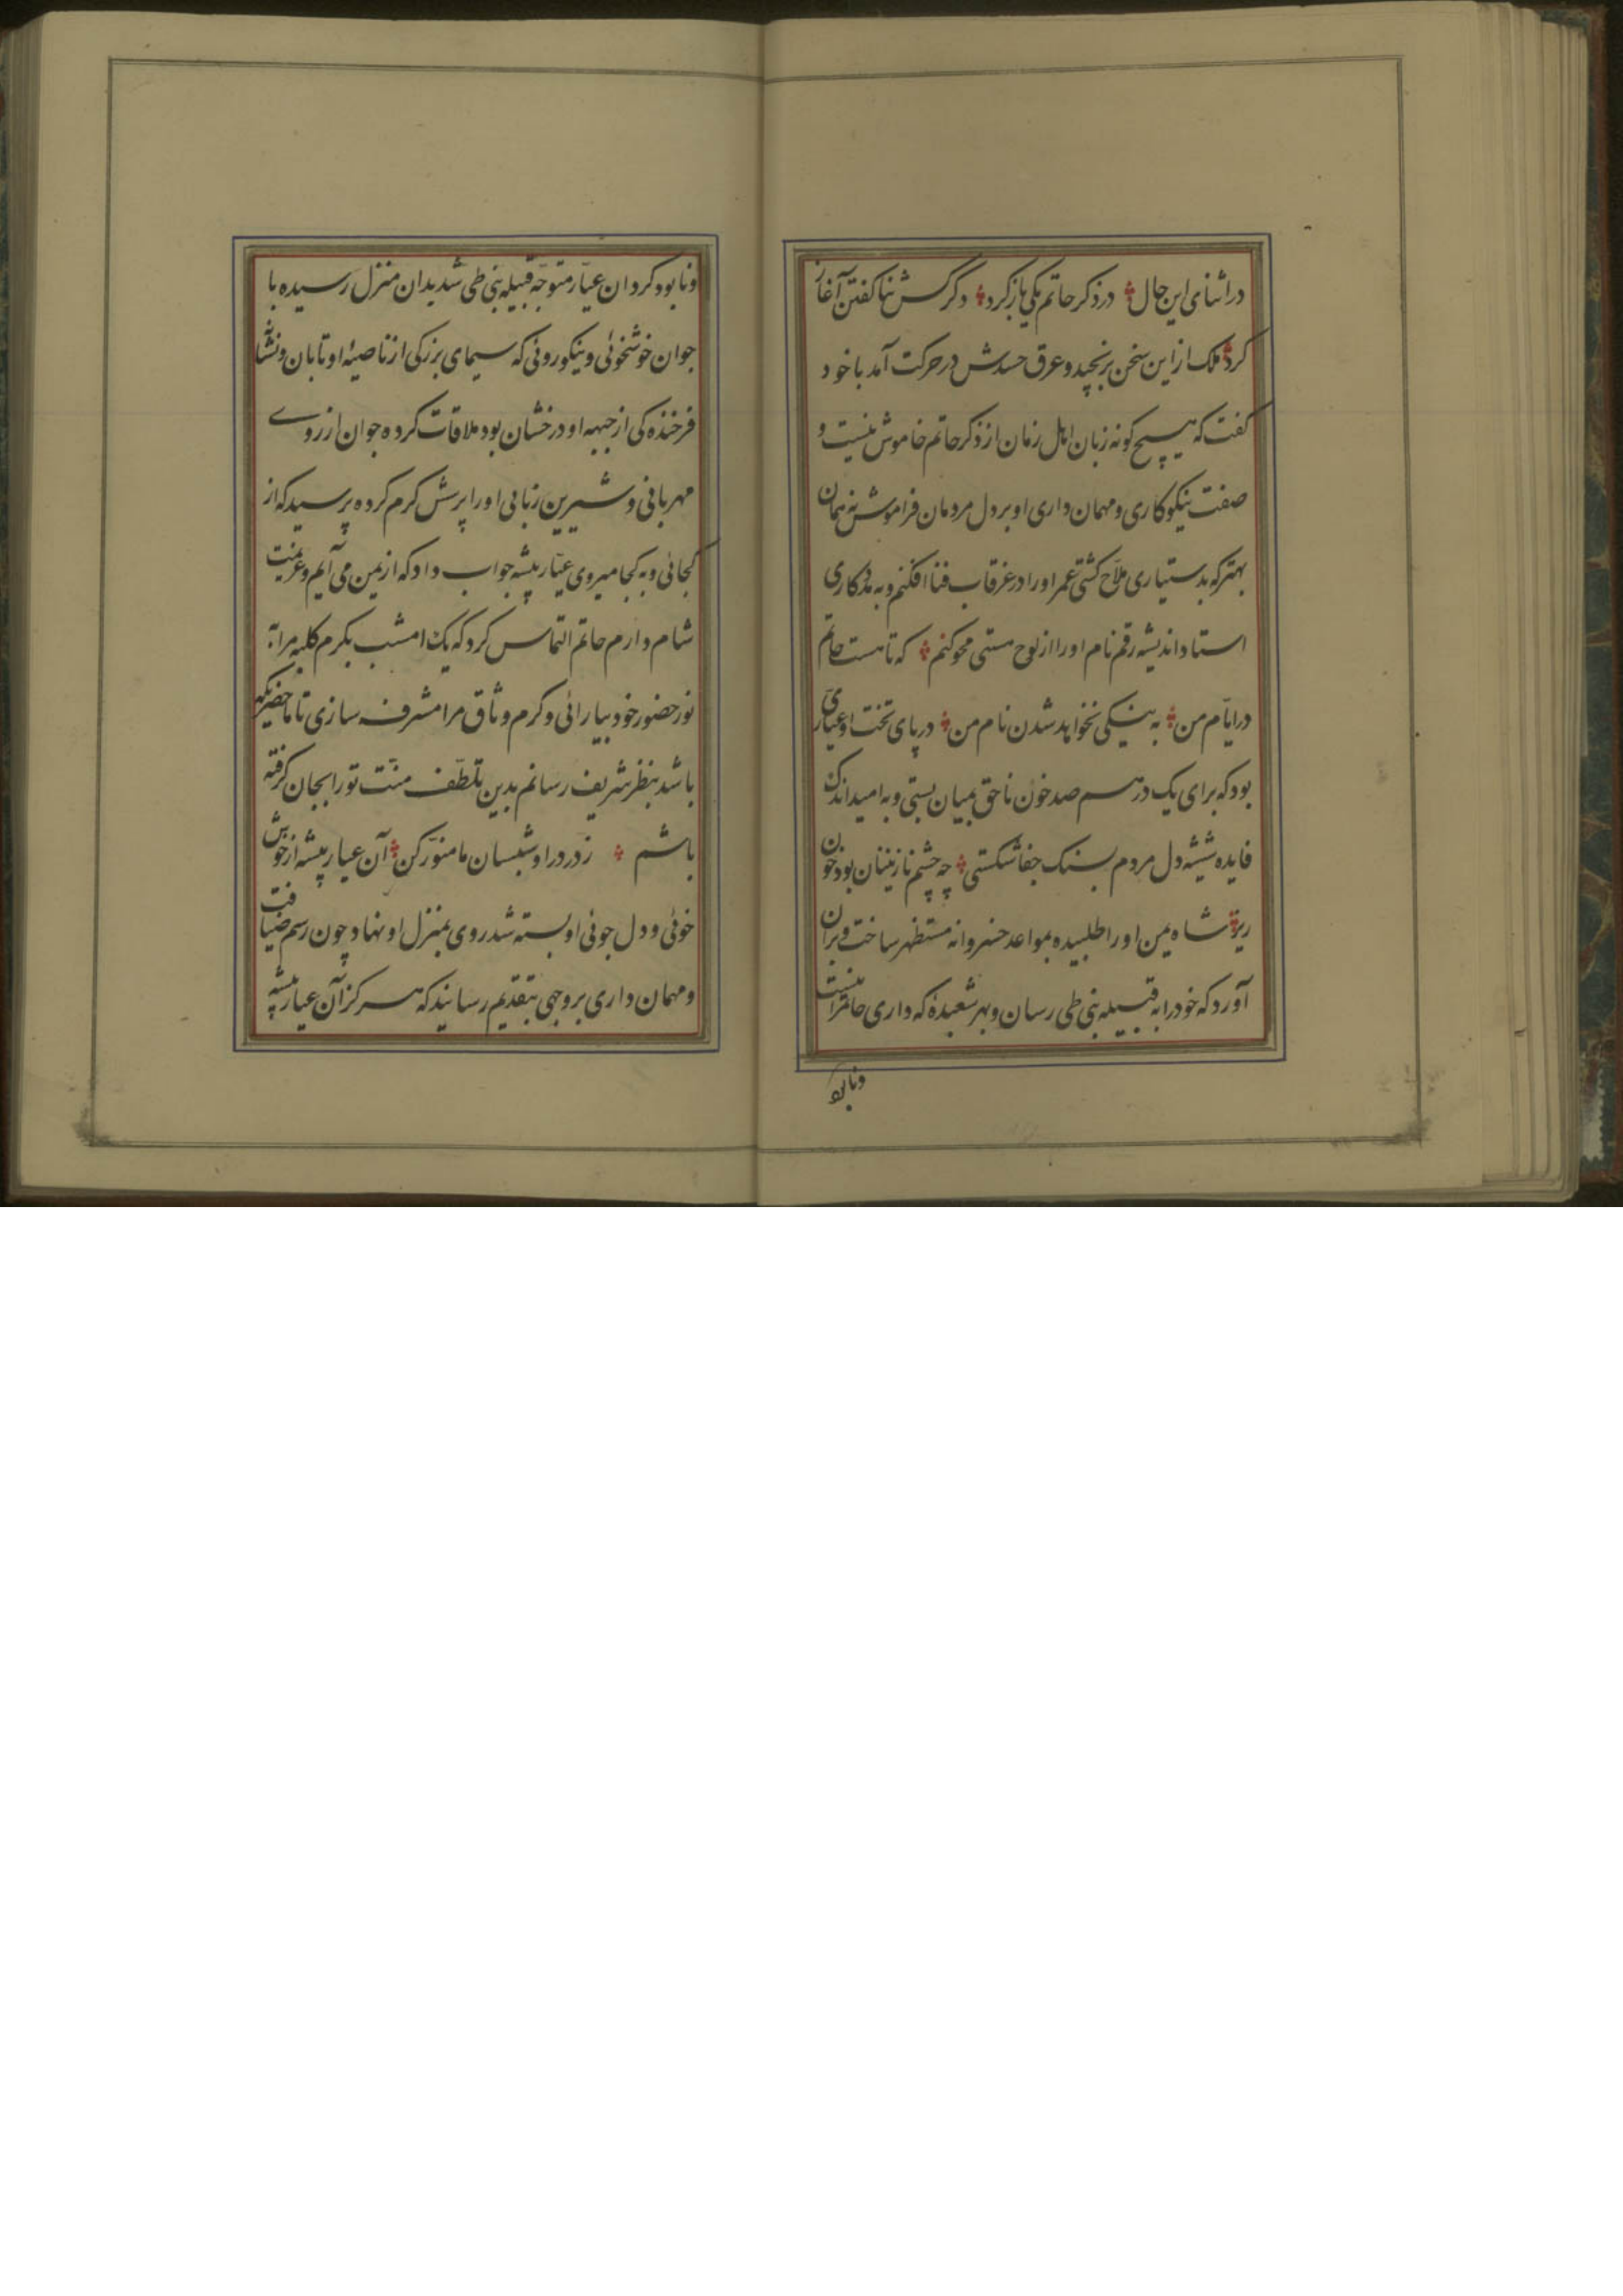 در اثنای این حال در ذکر حاتم یکی باز کرد دکر کس ثنا کفتن آغاز
کرد ملک از این سخن برنجید و عرق حسدش در حرکت آمد با خود
کفت که هیچ کونه زبان اهل زمان از ذکر حاتم خاموش نیست و
صفت نیکوکاری و مهمان داری او بر دل مردمان فراموش نه همان
بهتر که بدستیاری ملاح کشتی عمر او را در غرقاب فنا افکنم و به مددکاری
استاد اندیشه رقم نام او را از لوح هستی محو کنم که تا هست حاتم
در ایّام من به نیکی نخواهد شدن نام من در پای تخت او عیّاری
بود که برای یک درهم صد خون ناحق بمیان بستی و به امید اندک
فایده شیشه دل مردم بسنک جفا شکستی چه چشم نازنینان بود خون
ریز شاه یمن او را طلبیده بمواعد خسروانه مستظهر ساخت و بران
آورد که خود را به قبیله بنی طی رسان و بهر شعبده که داری حاتم را نیست
و نابود
و نابود کردان عیّار متوجّه قبیله بنی طی شد بدان منزل رسیده با
جوان خوشخوئی و نیکوروئی که سیمای بزرکی از ناصیهٔ او تابان و نشانه
فرخنده کی از جبهه او درخشان بود ملاقات کرده جوان از روی
مهربانی و شیرین زبانی او را پرسش کرم کرده پرسید که از
کجائی و به کجا میروی عیّار پیشه جواب داد که از یمن می آیم و عزیمت
شام دارم حاتم التماس کرد که یک امشب بکرم کلبه مرا به
نور حضور خود بیارائی و کرم وثاق مرا مشرف سازی تا ماحضریکه
باشد بنظر شریف رسانم بدین تلطّف منّت تو را بجان کرفته
باشم ز در درا و شبستان ما منوّر کن آن عیار پیشه از خوش
خوئی و دل جوئی او بسته شد روی بمنزل او نهاد چون رسم ضیافت
و مهمان داری بر وجهی بتقدیم رسانید که هرکز آن عیار پیشه